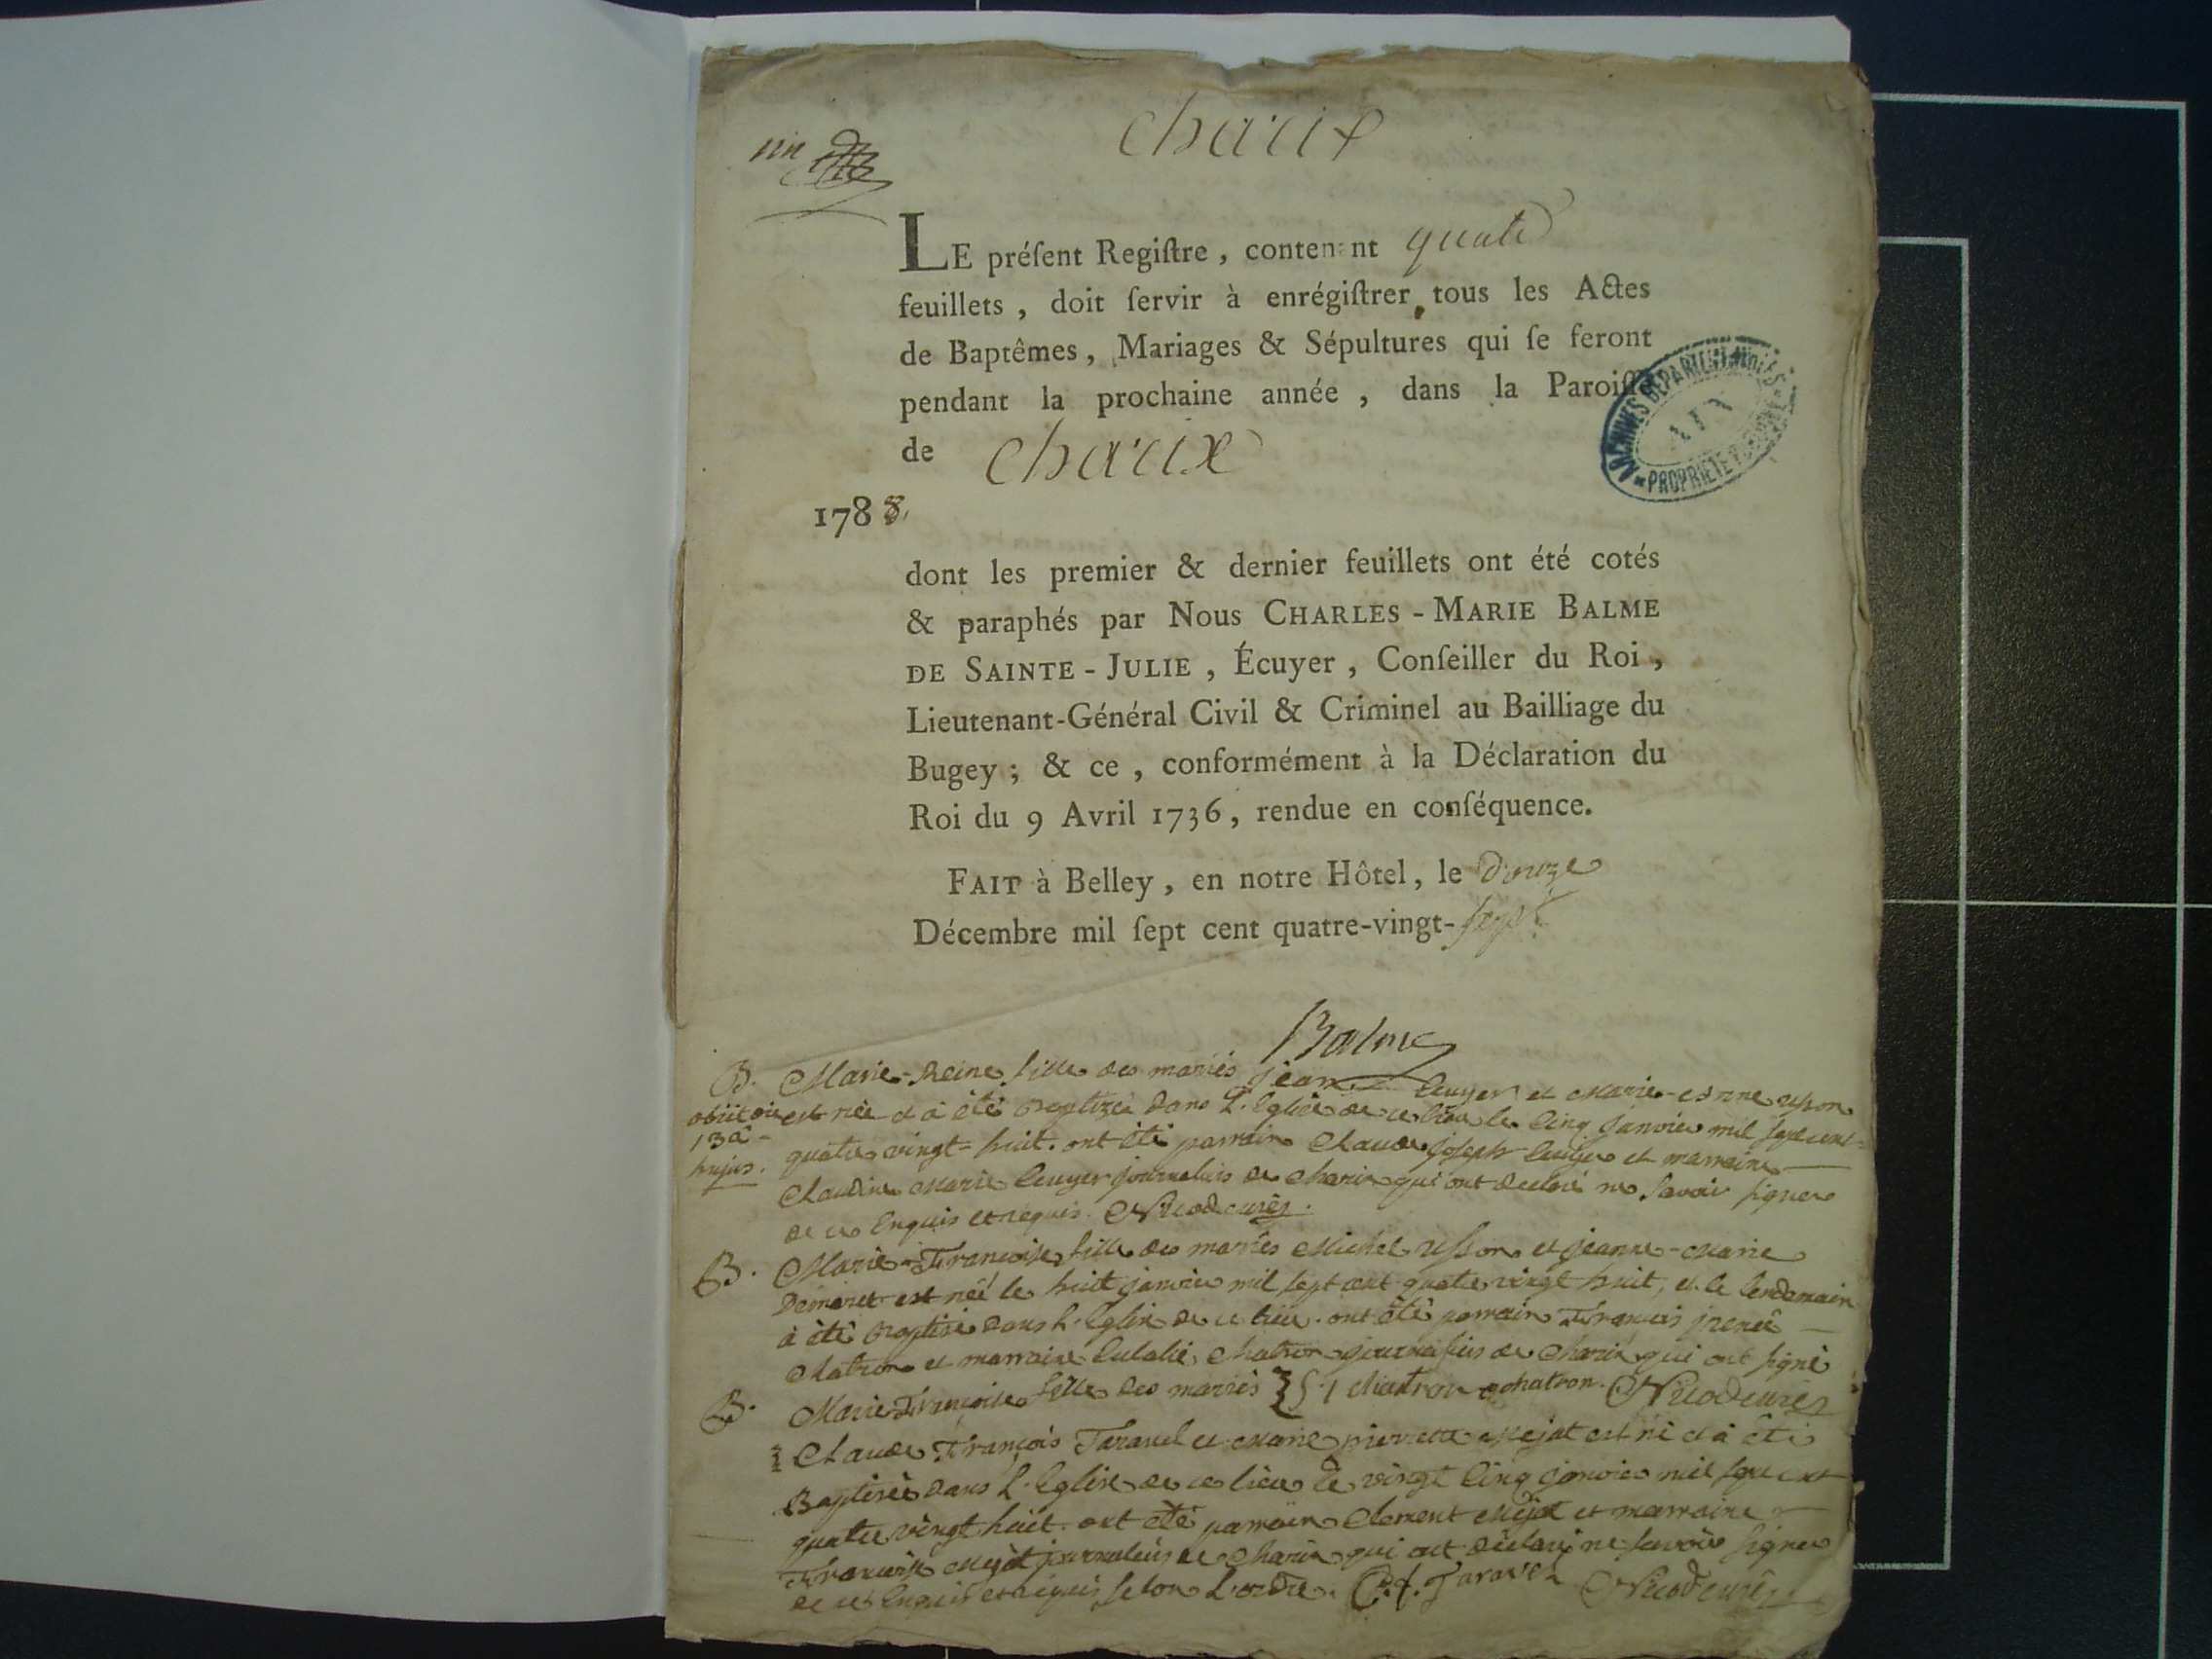 charix
LE préſent Regiſtre, contenant quatre
feuillets, doit ſervir à enrégiſtrer tous les Actes
de Baptêmes, Mariages & Sépultures qui ſe feront
pendant la prochaine année, dans la Paroiſſe
de charix
ARCHIVES DEPARTEMENTALES
AIN
PROPRIETE PUBLIQUE
1788
dont les premier & dernier feuillets ont été cotés
& paraphés par Nous CHARLES-MARIE BALME
DE SAINTE-JULIE, Écuyer, Conſeiller du Roi,
Lieutenant-Général Civil & Criminel au Bailliage du
Bugey; & ce, conformément à la Déclaration du
Roi du 9 Avril 1736, rendue en conſéquence.
FAIT à Belley, en notre Hôtel, le douze
Décembre mil ſept cent quatre-vingt-sept
Balme
B. Marie-Reine fille des mariés jean et Marie-
obiit est née et à été Baptizée dans L'Eglise de ce lieu le Cinq Janvier mil sept cent
13a quatre vingt-huit. ont été parrain Claude joseph et marraine
hujus. Claudine Marie journaliers de Charix qui ont declaré ne savoir signer
de ce Enquis et requis.
B. Marie-Françoise fille des mariés Michel et jeanne-Marie
est née le huit janvier mil sept cent quatre vingt huit, et le lendemain
à été Baptisée dans L'Eglise de ce lieu. ont été parrain François
Chatron et marraine Eulalie Chatron de Charix qui ont signé
B. Marie Françoise fille des mariés chatron chatron.
Claude François Taravel et Marie pierrette est né et à été
Baptisée dans L'Eglise de ce lieu le vingt Cinq janvier mil sept cent
quatre vingt huit. ont été parrain Clement et marraine
Françoise journaliers de Charix qui ont déclaré ne savoir signer
de ce Enquis et requis selon L'ordre. C. f. Taravel